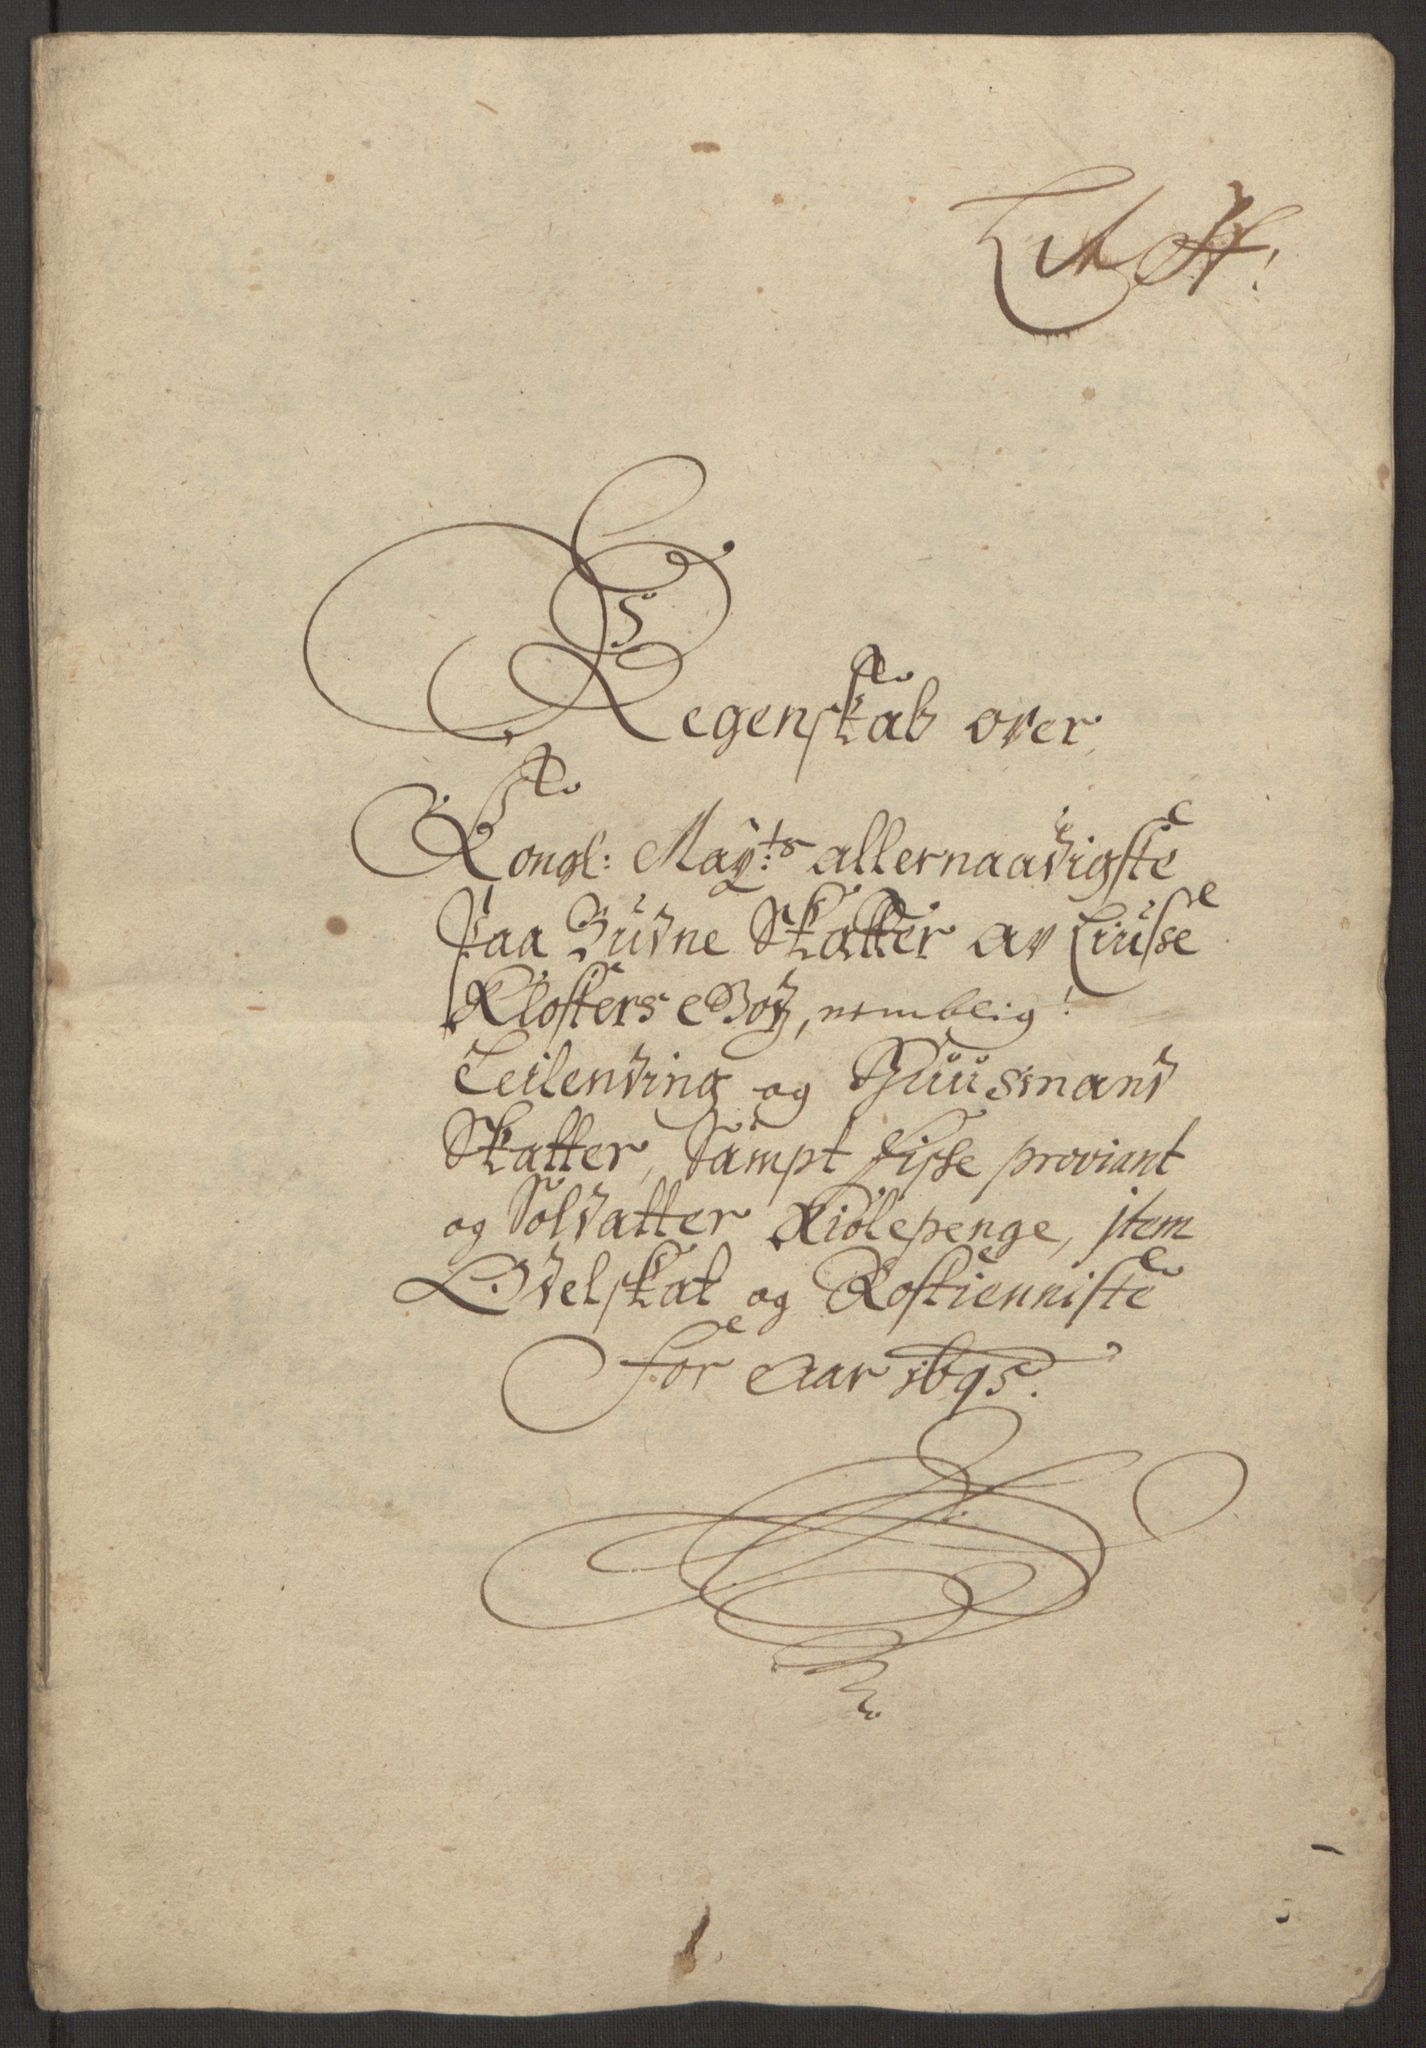 Lit H!
Regenskab over
Kongl: May:ts allernaadigste
paa Budne Skatter av Liusse
Klosters Godz, nemblig!
Leilending og Huusmand
Skatter, Sampt fisse proviant
og Soldatter Kiolepenge, item
Odelskat og Rostienniste
For Aar 1695.
1.